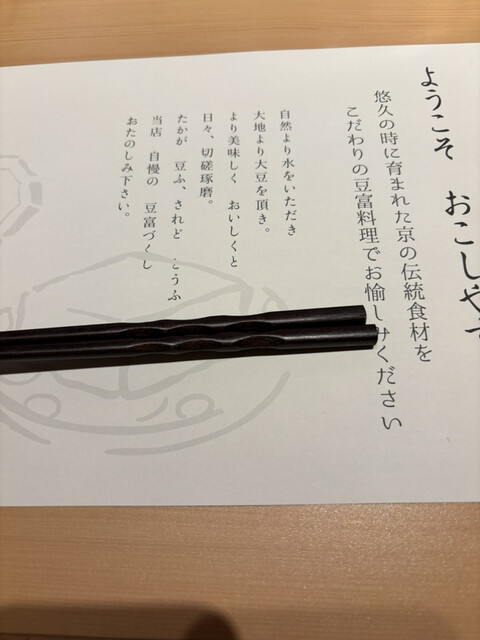 ようこそ おこしやす
悠久の時に育まれた京の伝統食材を
こだわりの豆富料理でお愉しみください
自然より水をいただき
大地より大豆を頂き。
より美味しく おいしくと
日々、切磋琢磨。
たかが 豆ふ、されど とうふ
当店 自慢の 豆富づくし
おたのしみ下さい。